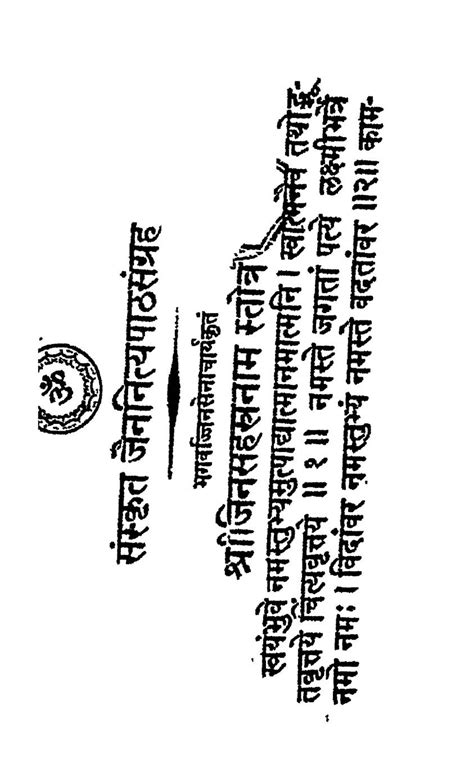 ॐ
संस्कृत जैननित्यपाठसंग्रह
भगवज्जिनसेनाचार्यकृतं
श्रीजिनसहस्रनाम स्तोत्र
स्वयंभुवे नमस्तुभ्यमुत्पाद्यात्मानमात्मनि । स्वात्मनैव तथोद्भू-
तवृत्तये चित्यवृत्तये ॥ १ ॥ नमस्ते जगतां पत्ये लक्ष्मीभर्त्रे
नमो नमः । विदांवर नमस्तुभ्यं नमस्ते वदतांवर ॥२॥ काम-